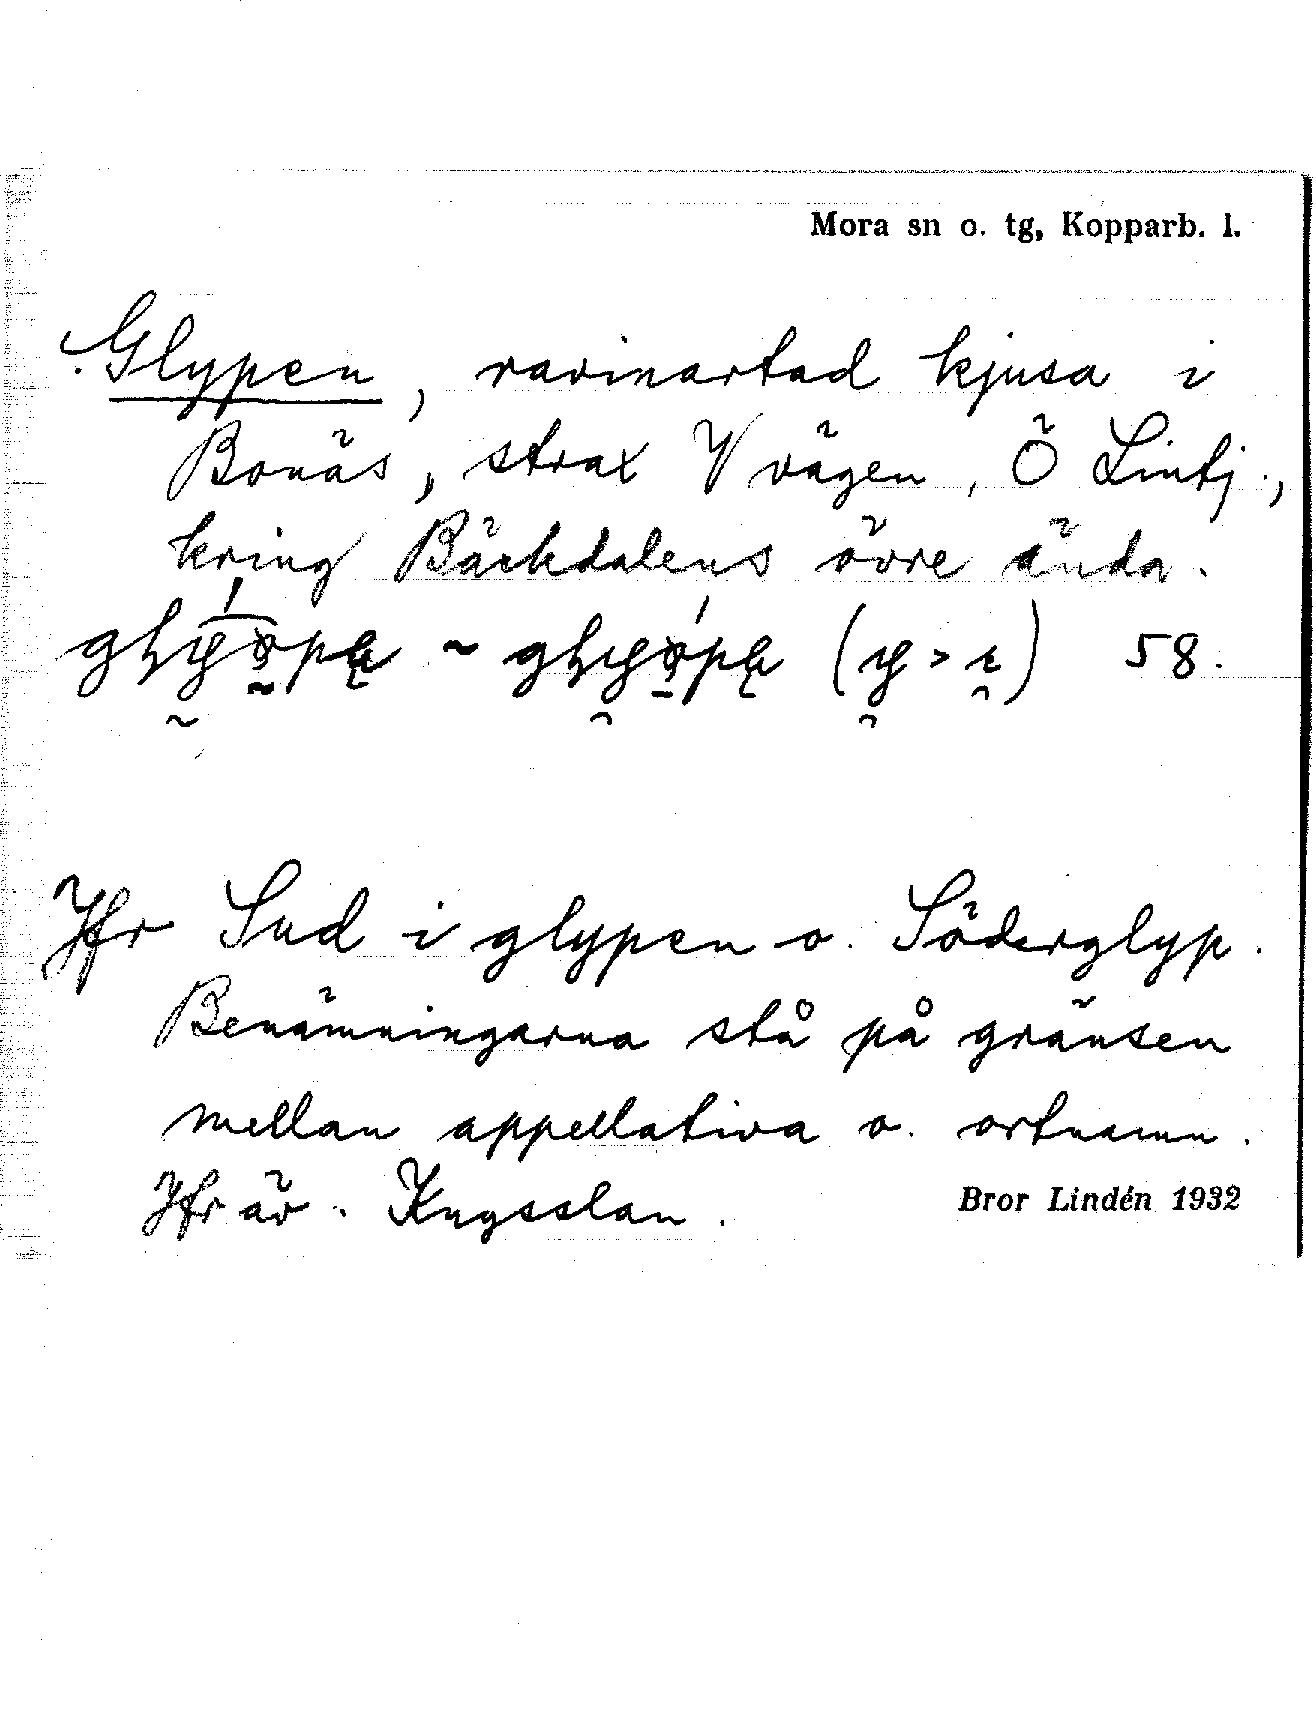 Mora sn o. tg, Kopparb. l.
Glypen, ravinartad kjusa i
Bonäs, strax V vägen, Ö Lintj.,
kring Bäckdalens övre ända.
58.
Jfr Sud i glypen o. Söderglyp.
Benämningarna stå på gränsen
mellan appellativa o. ortnamn.
Jfr äv.
Bror Lindén 1932